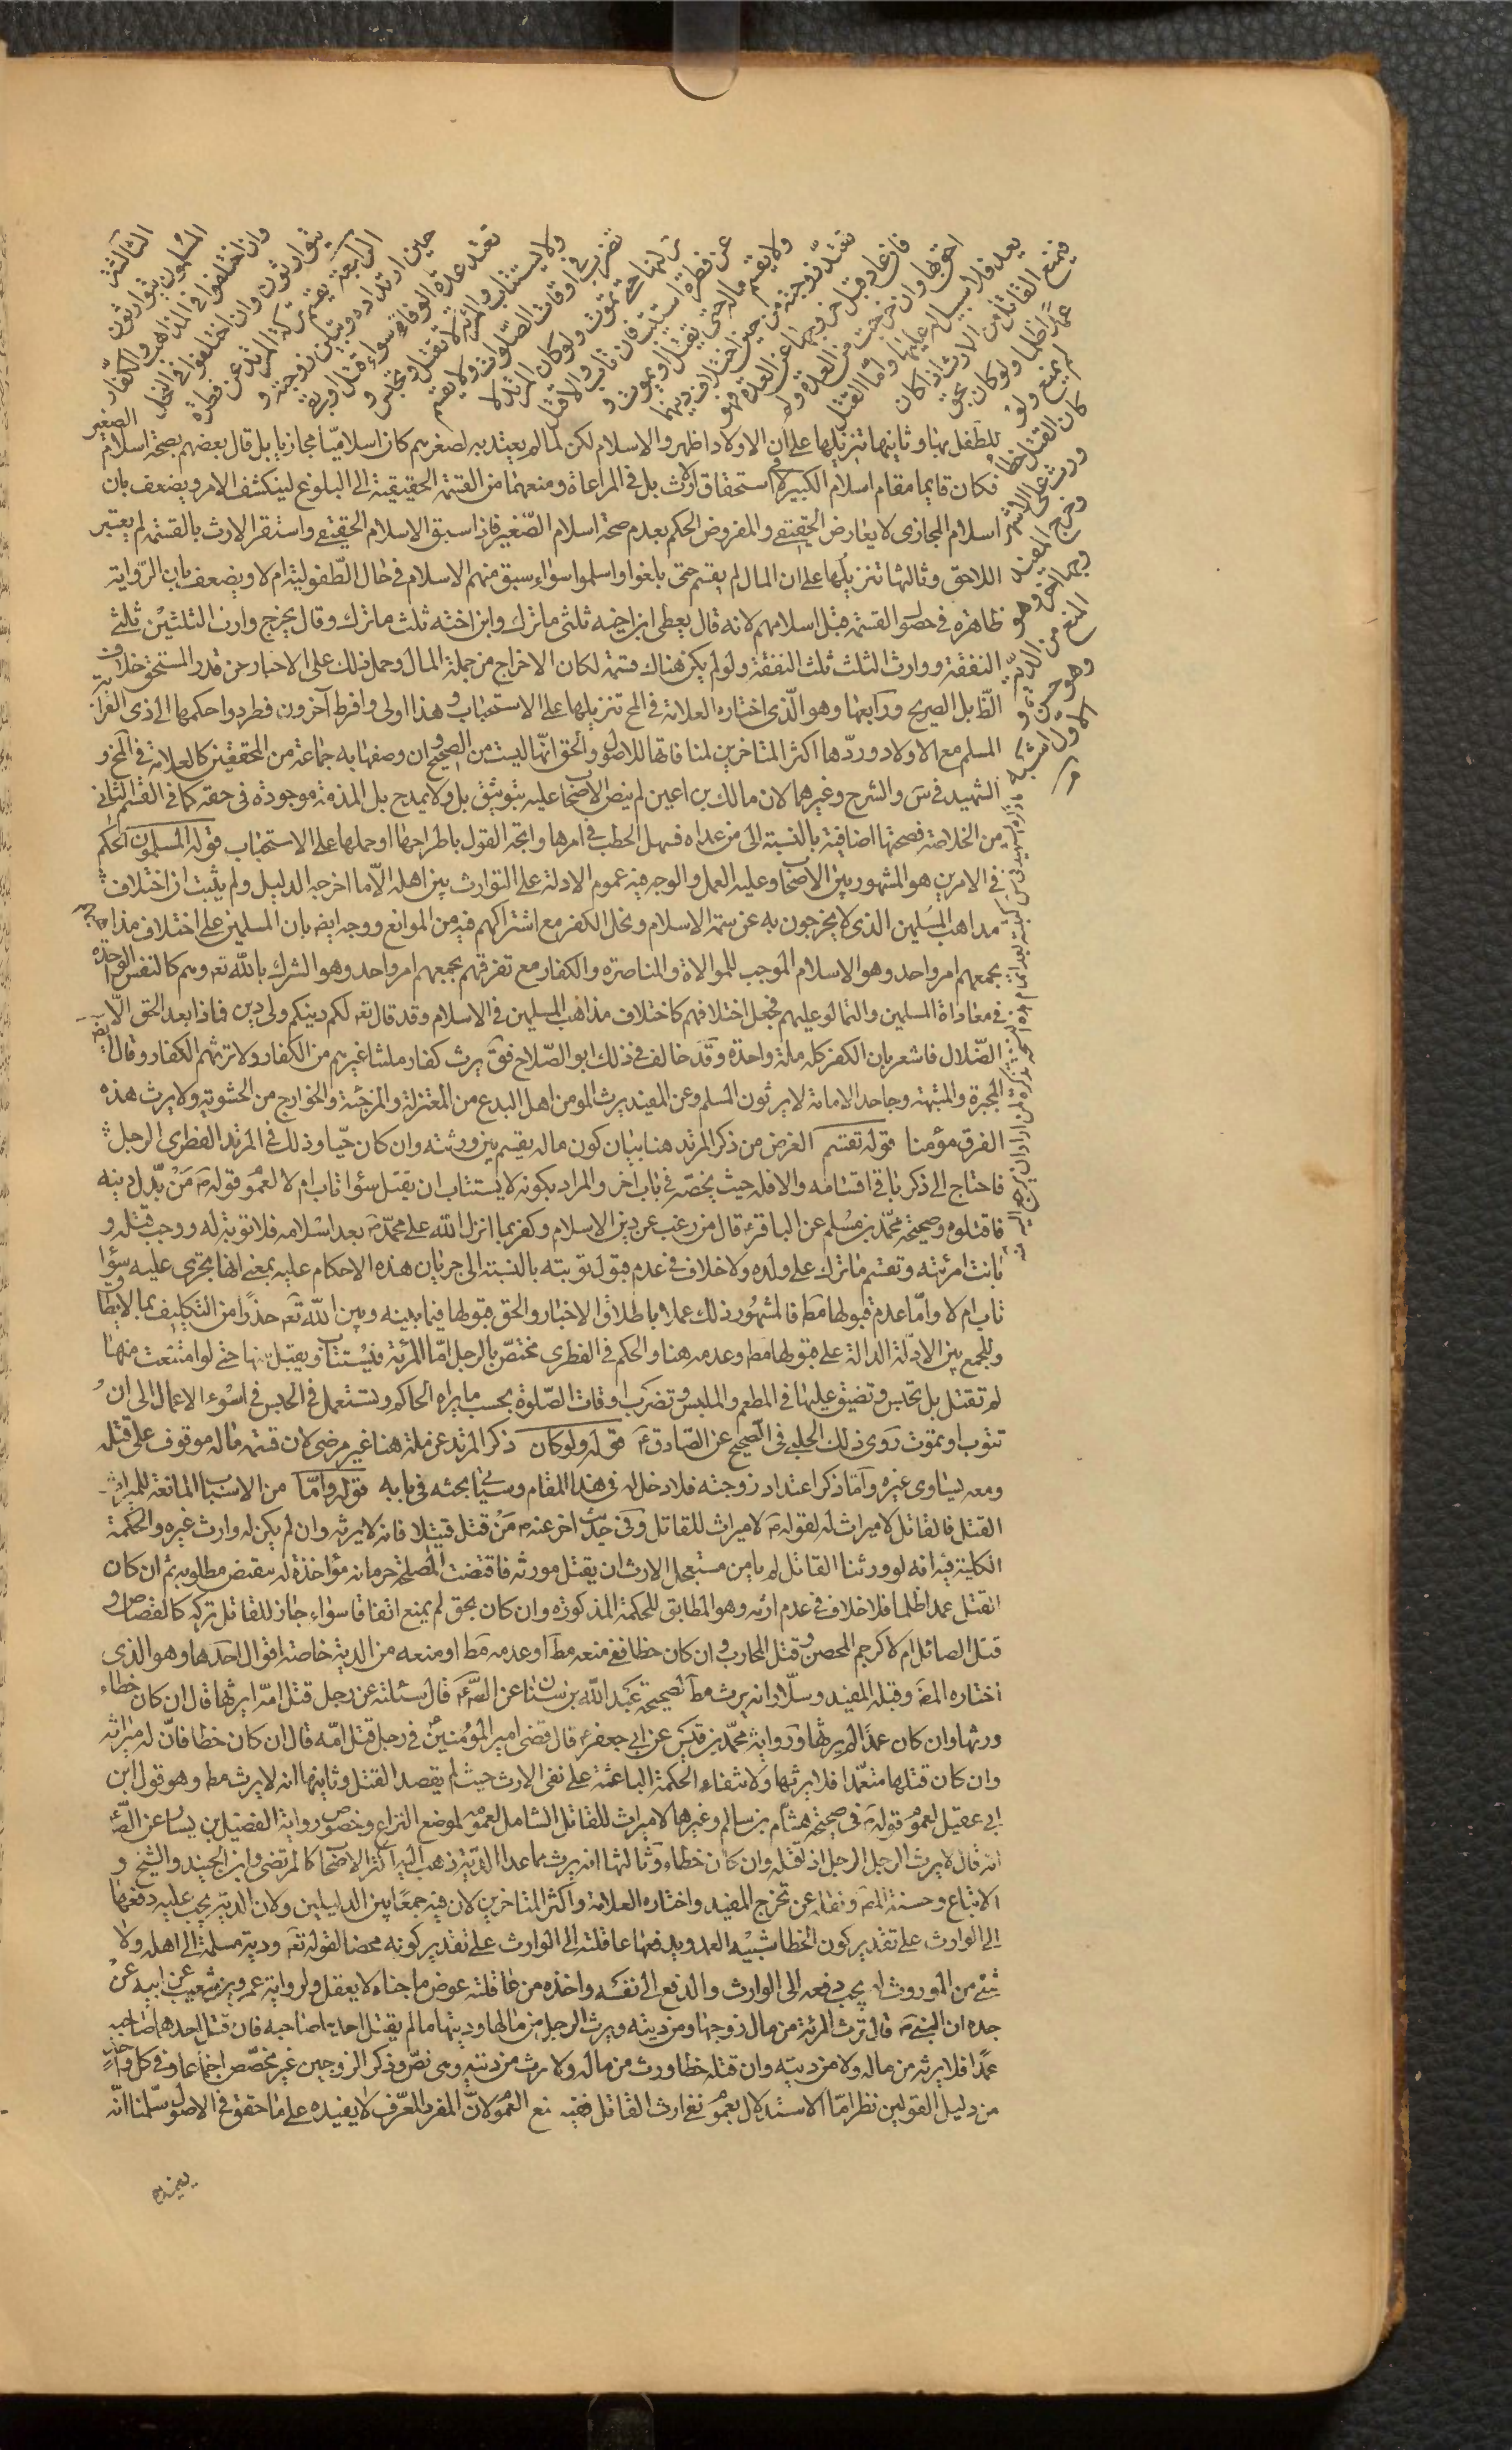 الثالثة
المسلمون يتوارثون
وان اختلفوا فى المذاهب والكفار
يتوارثون وان اختلفوا فى النحل
الرابعة يقسم تركة المرتد عن فطرة
حين ارتداده وتبين زوجته و
تعتد عدة الوفاة سواء قتل او بقى
ولا يستتاب والمرئة لا تقتل وتحبس و
تضرب فى اوقات الصلوات ولا يقسم
تركتها حتى تموت ولو كان المرتد لا
عن فطرة استتيب فان تاب والا قتل
ولا يقسم ماله حتى يقتل او يموت و
تعتد زوجته من حين اختلاف دينهما
فان عاد قبل خروجها عن العدة فهو
احق بها وان خرجت من العدة ولم
يعد فلا سبيل له عليها واما القتل
فيمنع القاتل من الارث اذا كان
عمدا ظلما ولو كان بحق
لم يمنع ولو
كان القتل خطأ
ورث على الاشهر
وخرج المفيد
وجها اخر وهو
المنع من الدية
وهو حسن و
الاول اشبه
للطفل بها وثانيها تنزيلها على ان الاولاد اظهروا الاسلام لكن لما لم يعتد به لصغرهم كان اسلاميا مجازيا بل قال بعضهم بصحة اسلام الصغير
فكان قايما مقام اسلام الكبير لا فى استحقاق الارث بل فى المراعاة ومنعهما من القسمة الحقيقية الى البلوغ لينكشف الامر ويضعف بان
اسلام المجازى لا يعارض الحقيقى والمفروض الحكم بعدم صحة اسلام الصغير فاذا سبق الاسلام الحقيقى واستقر الارث بالقسمة لم يعتبر
اللاحق وثالثها تنزيلها على ان المال لم يقسم حتى بلغوا واسلموا سواء سبق منهم الاسلام فى حال الطفولية ام لا ويضعف بان الرواية
ظاهرة فى حصول القسمة قبل اسلامهم لانه قال يعطى ابن اخيه ثلثى ما ترك وابن اخته ثلث ما ترك وقال يخرج وارث الثلثين ثلثى
النفقة ووارث الثلث ثلث النفقة ولو لم يكن هناك قسمة لكان الاخراج من جملة المال وحمل ذلك على الاخبار عن قدر المستحق خلاف
الظ بل الصريح ورابعها وهو الذى اختاره العلامة فى المخ تنزيلها على الاستحباب وهذا اولى وافرط آخرون فطردوا حكمها الى ذى القرابة
المسلم مع الاولاد وردها اكثر المتاخرين لمنافاتها للاصول والحق انها ليست من الصحيح وان وصفها به جماعة من المحققين كالعلامة فى المخ و
الشهيد فى س والشرح وغيرهما لان مالك بن اعين لم ينص الاصحاب عليه بتوثيق بل ولا بمدح بل المذمة موجودة فى حقه كما فى القسم الثانى
من الخلاصة فصحتها اضافية بالنسبة الى من عداه فسهل الخطب فى امرها واتجه القول باطراحها او حملها على الاستحباب قوله المسلمون الحكم
فى الامرين هو المشهور بين الاصحاب وعليه العمل والوجه فيه عموم الادلة على التوارث بين اهله الا ما اخرجه الدليل ولم يثبت ان اختلاف
مذاهب المسلمين الذى لا يخرجون به عن سمة الاسلام ونحل الكفر مع اشتراكهم فيه من الموانع ووجه ايض بان المسلمين على اختلاف مذاهبهم
يجمعهم امر واحد وهو الاسلام الموجب للموالاة والمناصرة والكفار مع تفرقهم يجمعهم امر واحد وهو الشرك بالله تعه وهم كالنفس الواحدة
فى معاداة المسلمين والتمالؤ عليهم فجعل اختلافهم كاختلاف مذاهب المسلمين فى الاسلام وقد قال تعه لكم دينكم ولى دين فماذا بعد الحق الا
الضلال فاشعر بان الكفر كله ملة واحدة وقد خالف فى ذلك ابو الصلاح فق يرث كفار ملتنا غيرهم من الكفار ولا ترثهم الكفار وقال ايض
المجبرة والمشبهة وجاحد الامامة لا يرثون المسلم وعن المفيد يرث المومن اهل البدع من المعتزلة والمرجئة والخوارج من الحشوية ولا يرث هذه
الفرق مؤمنا قوله تقسم الغرض من ذكر المرتد هنا بيان كون ماله يقسم بين ورثته وان كان حيا وذلك فى المرتد الفطرى الرجل
فاحتاج الى ذكر باقى اقسامه والا فله حيث يخصه فى باب آخر والمراد بكونه لا يستتاب ان يقتل سواء تاب ام لا لعموم قوله ص من بدل دينه
فاقتلوه وصحيحة محمد بن مسلم عن الباقر ع قال من رغب عن دين الاسلام وكفر بما انزل الله على محمد ص بعد اسلامه فلا توبة له ووجب قتله و
بانت امرئته وتقسم ما ترك على ولده ولا خلاف فى عدم قبول توبته بالنسبة الى جريان هذه الاحكام عليه بمعنى انها تجرى عليه سواء
تاب ام لا واما عدم قبولها مط فالمشهور ذلك عملا باطلاق الاخبار والحق قبولها فيما بينه وبين الله تعه حذرا من التكليف بما لا يطاق
وللجمع بين الادلة الدالة على قبولها مط وعدمه هنا والحكم فى الفطرى مختص بالرجل اما المرئة فتستتاب ويقبل منها حتى لو امتنعت منها
لم تقتل بل تحبس وتضيق عليها فى المطعم والملبس وتضرب اوقات الصلوة بحسب ما يراه الحاكم وتستعمل فى الحبس فى اسوء الاعمال الى ان
تتوب او تموت روى ذلك الحلبى فى الصحيح عن الصادق ع قوله ولو كان ذكر المرتد عن ملة هنا غير مرضى لان قسمة ماله موقوف على قتله
ومعه يساوى غيره واما ذكر اعتداد زوجته فلا دخل له فى هذا المقام وسيأتى بحثه فى بابه قوله واما من الاسباب المانعة للميراث
القتل فالقاتل لا ميراث له لقوله ص لا ميراث للقاتل وفى حديث اخر عنه ص من قتل قتيلا فانه لا يرثه وان لم يكن له وارث غيره والحكمة
الكلية فيه انه لو ورثنا القاتل لم يامن مستعجل الارث ان يقتل مورثه فاقتضت المصلحة حرمانه مؤاخذة له بنقيض مطلوبه ثم ان كان
القتل عمدا ظلما فلا خلاف فى عدم ارثه وهو المطابق للحكمة المذكورة وان كان بحق لم يمنع اتفاقا سواء جاز للقاتل تركه كالقصاص و
قتل الصائل ام لا كرجم المحصن وقتل المحارب وان كان خطا ففى منعه مط او عدمه مط او منعه من الدية خاصة اقوال احدها وهو الذى
اختاره المص وقبله المفيد وسلار انه يرث مط لصحيحة عبد الله بن سنان عن الص ع قال سئلته عن رجل قتل امه ايرثها قال ان كان خطاء
ورثها وان كان عمدا لم يرثها ورواية محمد بن قيس عن ابى جعفر ع قال قضى امير المؤمنين ع فى رجل قتل امه قال ان كان خطا فان له ميراثه
وان كان قتلها متعمدا فلا يرثها ولانتفاء الحكمة الباعثة على نفى الارث حيث لم يقصد القتل وثانيها انه لا يرث مط وهو قول ابن
ابى عقيل لعموم قوله ص فى صحيحة هشام بن سالم وغيرها لا ميراث للقاتل الشامل لعمومه لموضع النزاع وخصوص رواية الفضيل بن يسار عن الص ع
انه قال لا يرث الرجل الرجل اذا قتله وان كان خطاء وثالثها انه يرث ما عدا الدية ذهب اليه اكثر الاصحاب كالمرتضى وابن الجنيد والشيخ و
الاتباع وحسنه المص ونقله عن تخرج المفيد واختاره العلامة واكثر المتاخرين لان فيه جمعا بين الدليلين ولان الدية يجب عليه دفعها
الى الوارث على تقدير كون الخطا شبيه العمد ويدفعها عاقلته الى الوارث على تقدير كونه محضا لقوله تعه ودية مسلمة الى اهله ولا
شئ من الموروث له يجب دفعه الى الوارث والدفع الى نفسه واخذه من عاقلته عوض ما جناه لا يعقل ولرواية عمرو بن شعيب عن ابيه عن
جده ان النبى ص قال ترث المرئة من مال زوجها ومن ديته ويرث الرجل من مالها وديتها ما لم يقتل احدهما صاحبه فان قتل احدهما صاحبه
عمدا فلا يرثه من ماله ولا من ديته وان قتله خطا ورث من ماله ولا يرث من ديته وهى نص وذكر الزوجين غير مخصص اجماعا وفى كل واحد
من دليل القولين نظر اما الاستدلال بعموم نفى ارث القاتل ففيه منع العموم لان المفرد المعرف لا يفيده على ما حقق فى الاصول سلمنا انه
يفيده